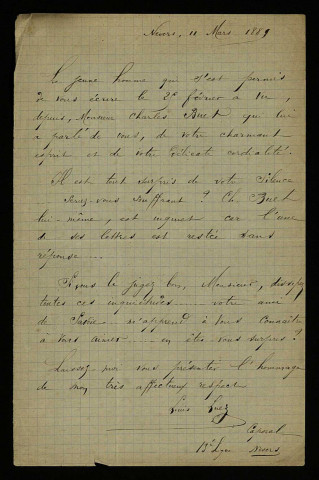 Nevers, 11 Mars 1889
Le jeune homme qui s'est permis
de vous écrire le 2 février a vu,
depuis, Monsieur Charles Buet qui lui
a parlé de vous, de votre charmant
esprit et de votre délicate cordialité.
Il est tout surpris de votre silence
Seriez-vous souffrant ? Ch. Buet
lui-même, est inquiet car l'une
de ses lettres est restée sans
réponse
Si vous le jugez bon, Monsieur, dissipez
toutes ces inquiétudes votre ami
de m'apprend à vous connaître
à vous aimer en êtes-vous surpris ?
Laissez-moi vous présenter l'hommage
de mon très affectueux respect
Louis
Caporal
13e Nevers